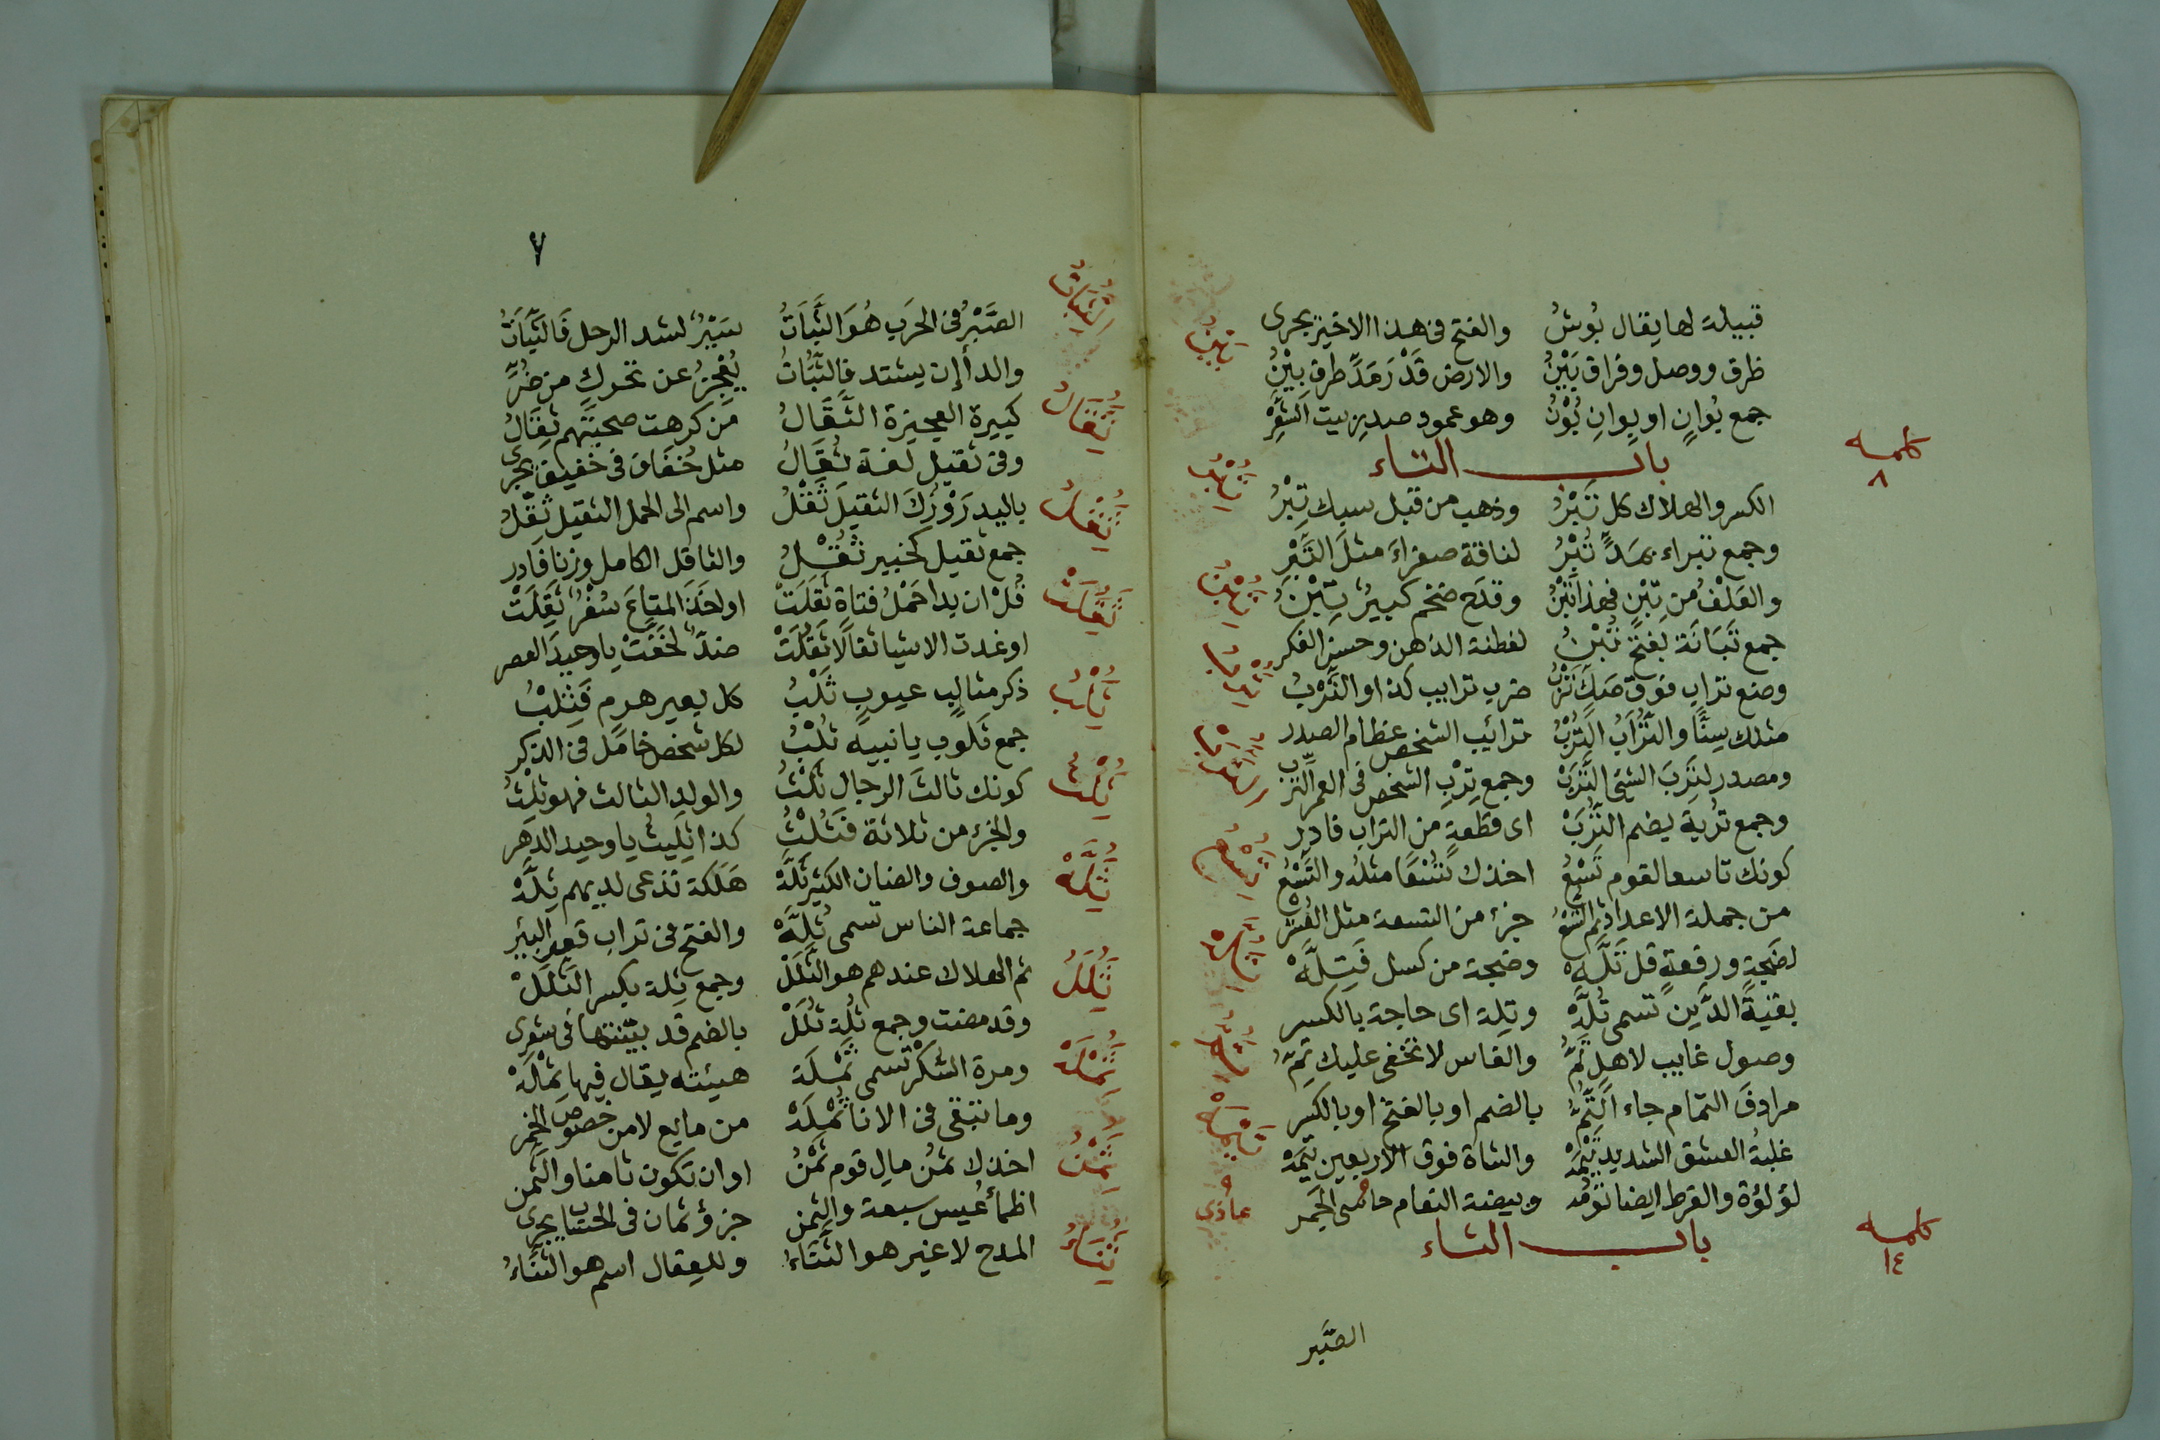 قبيلة لها يقال بُوشُ والفتح فى هذا الاخير يجرى
ظرف ووصل وفراق بَيْنُ والارض قَدْرَ مَدِّ طرف بِيْنُ
جمع بُوانٍ او بِوانِ بُوْنُ وهو عمود صدير بيت الشَعْر
باب التاء
كلمه ٨
الكسر والهلاك كل تَبْرُ وذهب من قبل سبك تِبْرُ
وجمع تبراء بمَدٍّ تُبْرُ لناقة صفراءَ مثلَ التِّبْر
والعَلْفُ من تِبْنٍ فهذا تَبْنُ وقدَح ضخم كبيرٌ تِبْنُ
جمع تَبَانَة بفتح تُبْنُ لفطنة الذهن وحسن الفكر
وضع تراب فوق صَكٍّ تَرْبُ ضرب ترايب كذا والتَّرْبُ
مثلك سِنًّا والتُّرَابُ التُرْبُ ترائيب الشخص عظام الصدر
ومصدر لتَرِبَ الشئ التَّرَبْ وجمع تِرْبِ الشخص فى العمر التِّرَب
وجمع تُربة بضم التُّرَبْ اى قطعةٍ من التراب فادر
كونك تاسعا لقوم تَسْعُ اخذك تُسْعًا مثلهُ والتِّسْعُ
من جملة الاعداد ثم التُّسْعُ جزء من التسعة مثل العُشْر
لضجةٍ ورفعةٍ قل تَلَّهْ وضجة من كسل فَتِلَّهْ
بقيةُ الدَّين تسمى تُلَّهْ وتِلة اى حاجة بالكسر
وصول غايب لاهلٍ تَمُّ والفاس لا تخفى عليك تِمُّ
مرادفَ التمام جاء التُّمُّ بالضم او بالفتح او بالكسر
غلبةُ العشق الشديد تَيْمَهْ والشاة فوق الاربعين تِيْمَهْ
لؤلؤة والقرط ايضا تُوْمَه وبيضة النعام حامى الجَمر
باب الثاء
كلمه ١٤
الصَّبر
٧
الثبات
الصَّبْرُ فى الحَرَب هُوَ الثَّبَاتُ سَيْرٌ لشد الرحل فَالثِّبَاتُ
والداُ إن يشتد فالثُّبَاتُ يُعْجِزُ عن تحركٍ من ضُرِّ
ثقال
كبيرة العجيزة الثَّقَالُ مَن كرهت صحبتَهم ثِقَالُ
وفى ثقيل لغة ثُقَالُ مثل خُفَاف فى خفيف يجرى
باليد رَوْزُكَ الثقيلَ ثَقْلُ واسم الى الحمل الثقيل ثِقْلُ
جمع ثقيل كخبير ثُقْلُ والثاقل الكامل وزنا فادر
ثقلت
قُلْ ان بدا حَمْلُ فتاة ثَقَلَتْ او اخَذَ المتاعَ سُفْرٌ ثَقِلَتْ
او غدت الاشيا ثقالًا ثَقُلَتْ ضدّ لخفَّتْ يا وحيدَ العصر
ثلب
ذكر مثالبٍ عيوبٍ ثَلْبُ كل بعير هرم فَثِلْبُ
جمع ثَلوبٍ يا نبيه ثُلْبُ لكل شخص خامل فى الذكر
ثلث
كونك ثالثَ الرجال ثَلْثُ والولد الثالث فهو ثِلْثُ
والجزء من ثلاثة فَثُلْثُ كذا ثِلِيثُ يا وحيد الدهر
ثله
والصوف والضان الكثير ثَلَّهْ هَلَكة تدعى لديهم ثِلَّهْ
جماعة الناس تسمى ثُلَّهْ والفتح فى تراب قعر البئر
ثلل
ثم الهلاك عندهم هو الثَّلَلْ وجمع ثِلة بكسر الثِّلَلْ
وقد مضت وجمع ثُلَّة ثُلَلْ بالضم قد بيّنتها فى شعرى
ثمله
ومرة السُّكْر تسمى ثَمْلَة هيئته يقال فيها ثِمْلَهْ
وما تبقى فى الانا ثُمْلَهْ من مايع لا من خصوص الخمر
ثمن
اخذك ثمْنَ مالِ قوم ثَمْنُ او ان تكون ثامنا والثِّمن
اظمأ عُيس سبعة والثُّمن جزؤ ثمان فى الحساب يجرى
ثناء
المدح لا غير هو الثَّنَاءُ وللعِقال اسم هو الثِّنَاءُ